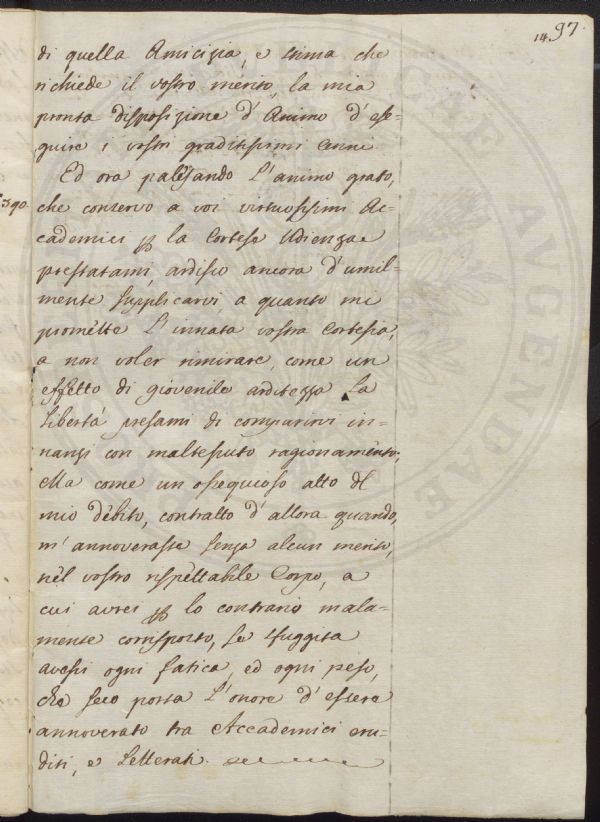 14 97.
di quella Amicizia, e stima che
richiede il vostro merito, la mia
pronta disposizione d'Animo d'ese-
guire i vostri graditissimi Cenni
Ed ora palesando L'animo grato,
che conservo a voi virtuosissimi Ac-
cademici la Cortese Udienza
prestatami, ardisco ancora d'umil-
mente supplicarvi, a quanto mi
promette L'innata vostra Cortesia,
a non voler rimirare, come un
effetto di giovenile arditezza La
Libertà presami di comparirvi in-
nanzi con maltessuto ragionamento,
Ma come un ossequioso atto del
mio debito, contratto d'allora quando,
m'annoveraste senza alcun merito,
nel vostro rispettabile Corpo, a
cui avrei lo contrario mala-
mente corrisposto, se sfuggita
avessi ogni fatica, ed ogni peso,
che seco porta L'onore d'essere
annoverato tra Accademici eru-
diti, e Letterati.
AVGENDAE